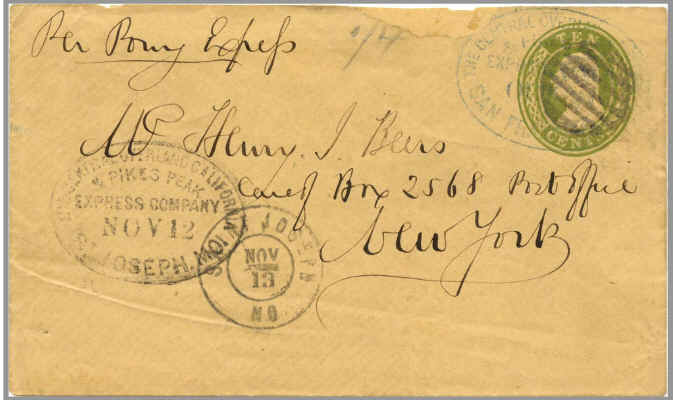 Per Pony Expeſs
1/17
THE CENTRAL OVERLAND
SAN FR
TEN
CENTS
Mr Henry J Beers
Care of Box 2568 Post Office
New York
OVERLAND CALIFORNIA
& PIKES PEAK
EXPRESS COMPANY
NOV 12
ST JOSEPH.
SAINT JOSEPH
NOV
13
MO